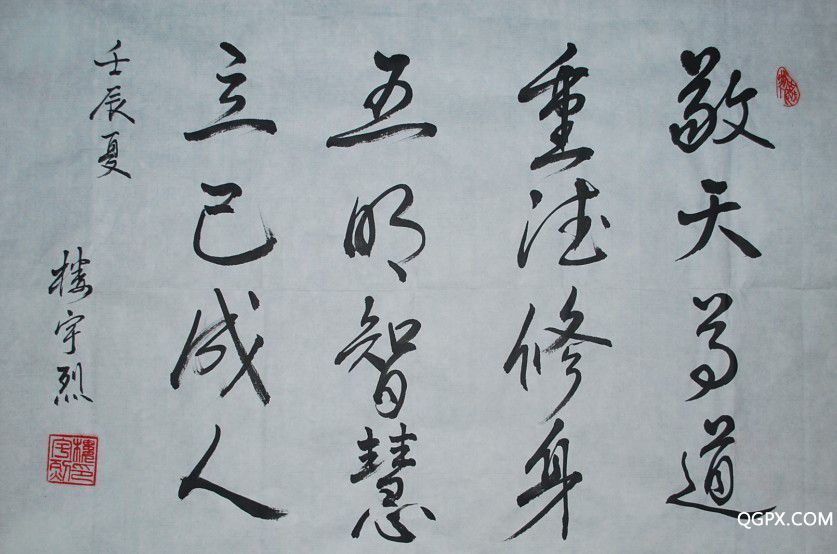 敬天尊道
重德修身
五明智慧
立己成人
壬辰夏
樓宇烈
樓宇烈印
QGPX.COM